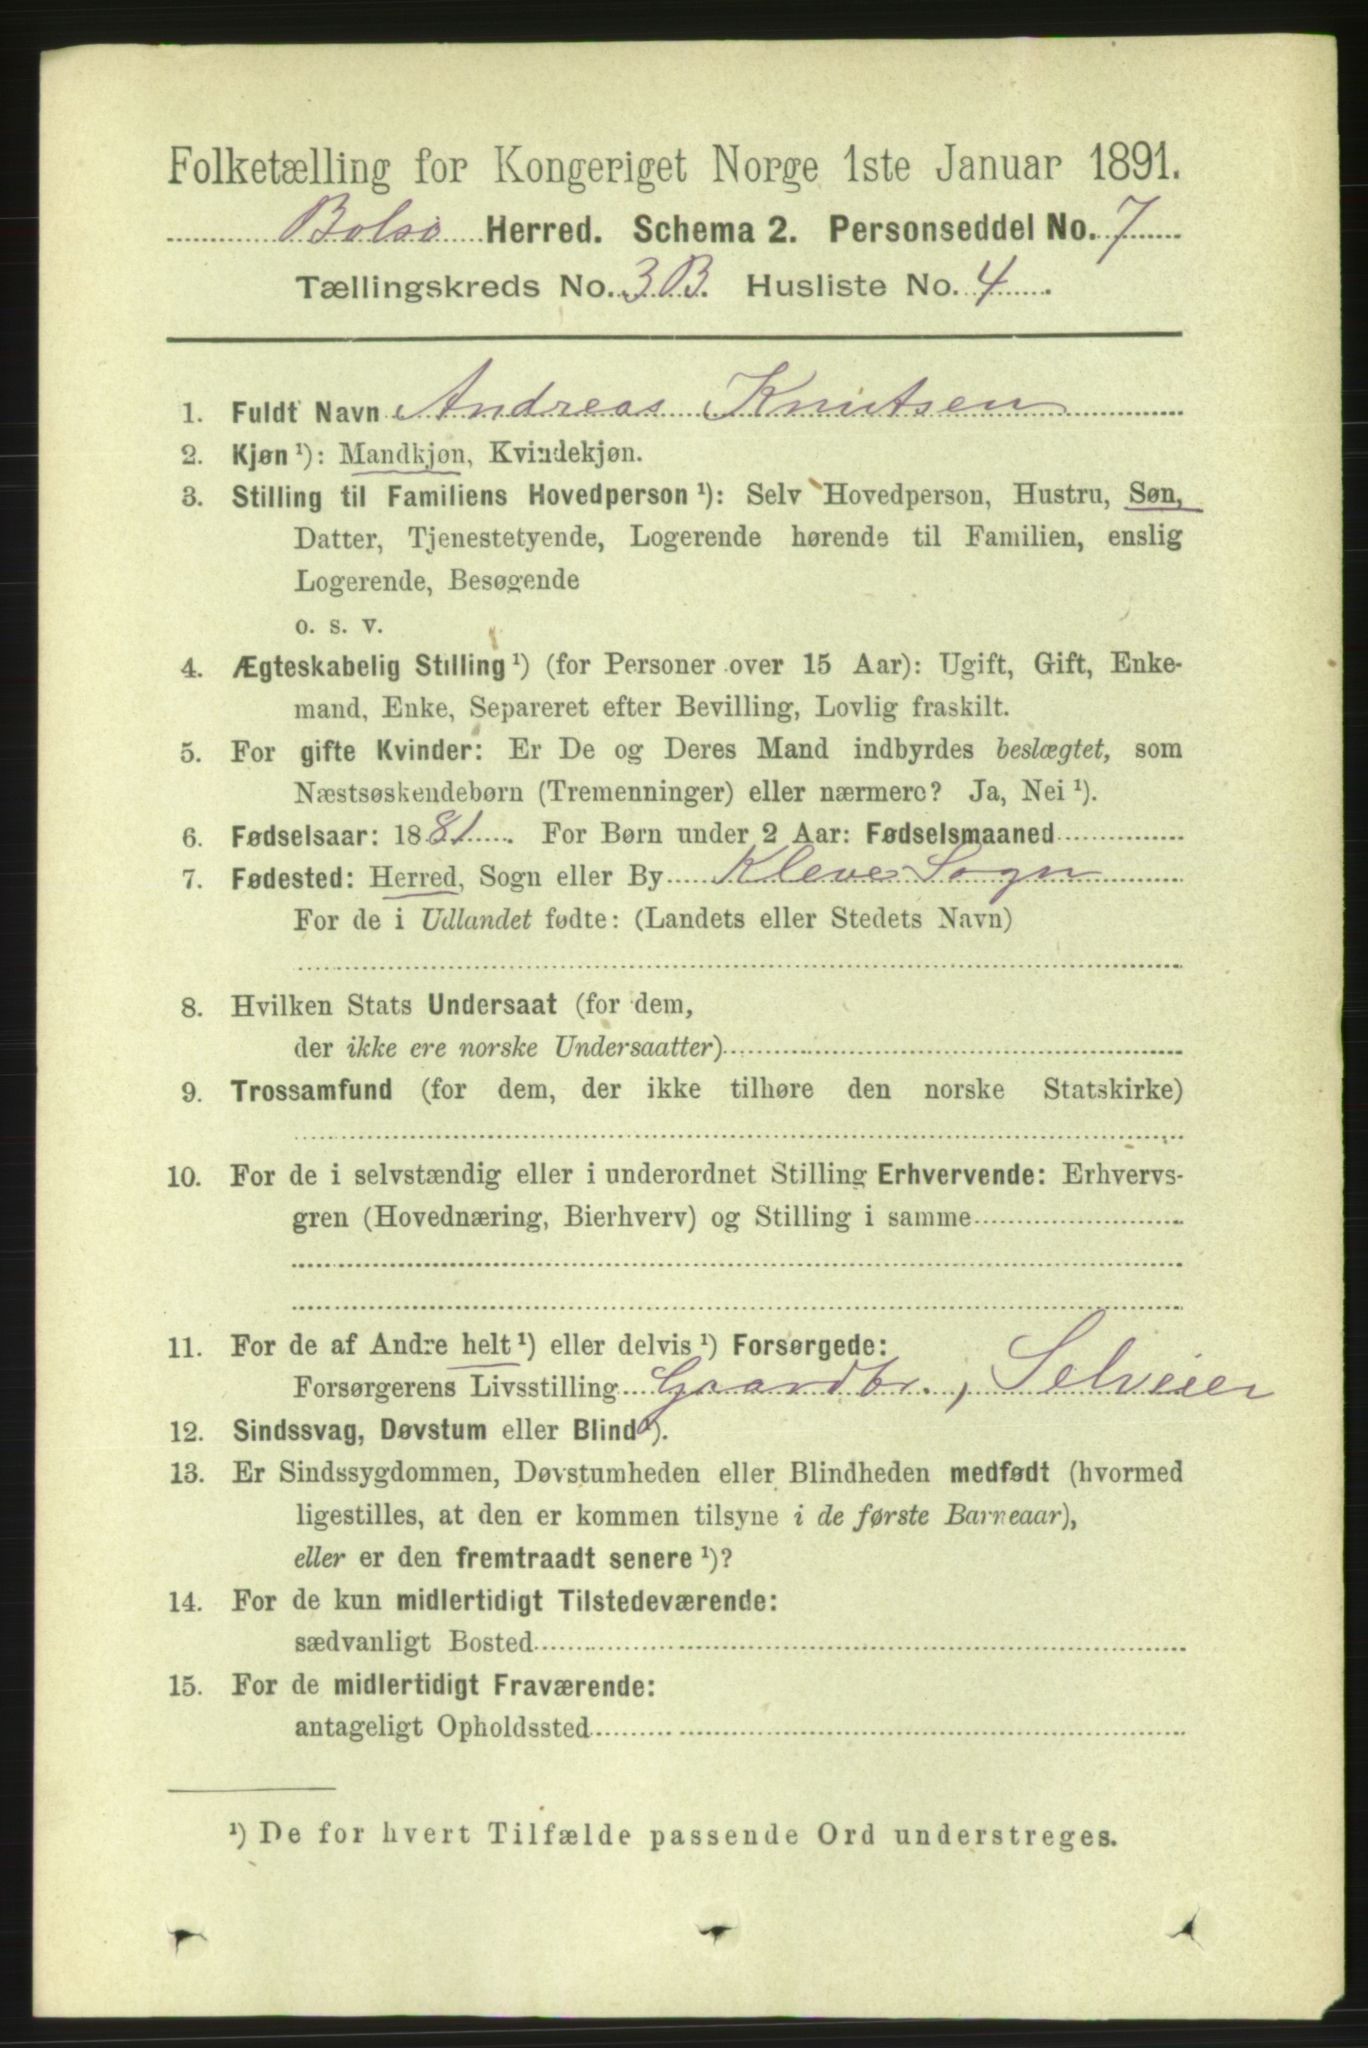 Folketælling for Kongeriget Norge 1ste Januar 1891.
Bolsø Herred. Schema 2. Personseddel No. 7
Tællingskreds No. 3B. Husliste No. 4.
1. Fuldt Navn Andreas Knutsen
2. Kjøn ¹): Mandkjøn, Kvindekjøn.
3. Stilling til Familiens Hovedperson ¹): Selv Hovedperson, Hustru, Søn,
Datter, Tjenestetyende, Logerende hørende til Familien, enslig
Logerende, Besøgende
o. s. v.
4. Ægteskabelig Stilling ¹) (for Personer over 15 Aar): Ugift, Gift, Enke-
mand, Enke, Separeret efter Bevilling, Lovlig fraskilt.
5. For gifte Kvinder: Er De og Deres Mand indbyrdes beslægtet, som
Næstsøskendebørn (Tremenninger) eller nærmere? Ja, Nei ¹).
6. Fødselsaar: 1881. For Børn under 2 Aar: Fødselsmaaned
7. Fødested: Herred, Sogn eller By Kleve Sogn
For de i Udlandet fødte: (Landets eller Stedets Navn)
8. Hvilken Stats Undersaat (for dem,
der ikke ere norske Undersaatter)
9. Trossamfund (for dem, der ikke tilhøre den norske Statskirke)
10. For de i selvstændig eller i underordnet Stilling Erhvervende: Erhvervs-
gren (Hovednæring, Bierhverv) og Stilling i samme
11. For de af Andre helt ¹) eller delvis ¹) Forsørgede:
Forsørgerens Livsstilling Gaardbr., Selveier
12. Sindssvag, Døvstum eller Blind ¹).
13. Er Sindssygdommen, Døvstumheden eller Blindheden medfødt (hvormed
ligestilles, at den er kommen tilsyne i de første Barneaar),
eller er den fremtraadt senere ¹)?
14. For de kun midlertidigt Tilstedeværende:
sædvanligt Bosted
15. For de midlertidigt Fraværende:
antageligt Opholdssted
¹) De for hvert Tilfælde passende Ord understreges.